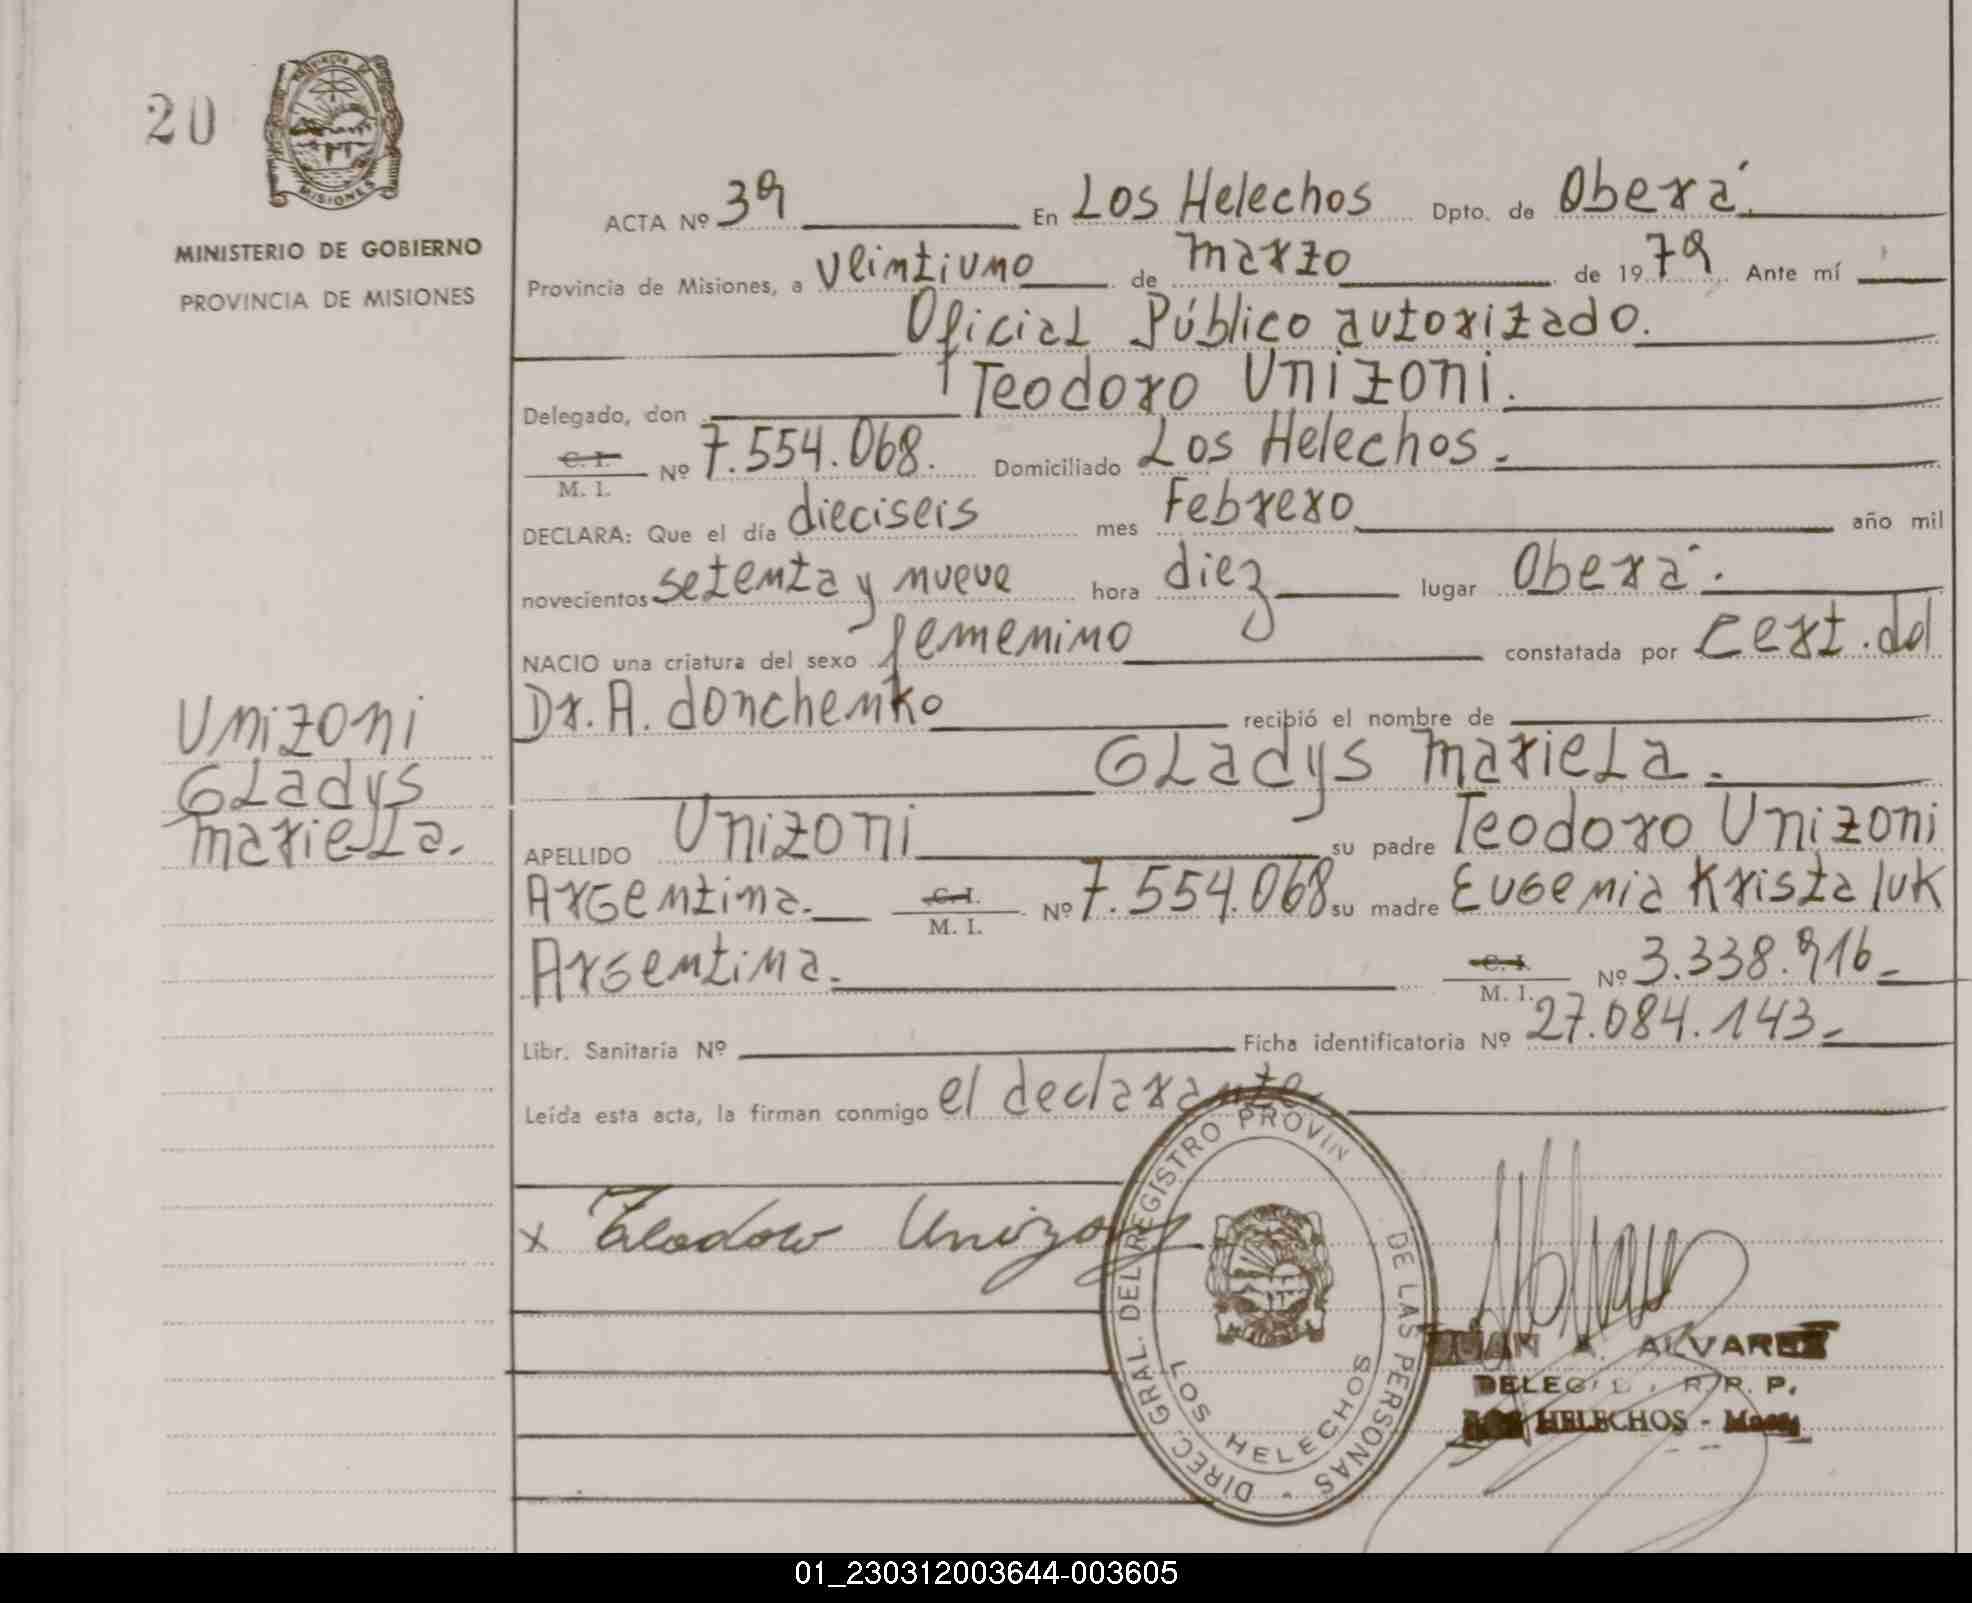 20
PROVINCIA DE
MISIONES
MINISTERIO DE GOBIERNO
PROVINCIA DE MISIONES
ACTA Nº 39 En Los Helechos Dpto. de Oberá.
Provincia de Misiones, a veintiuno de marzo de 1979 Ante mí
Oficial Público autorizado.
Delegado, don Teodoro Unizoni.
C. I.
M. I. Nº 7.554.068. Domiciliado Los Helechos.
DECLARA: Que el día dieciseis mes Febrero año mil
novecientos setenta y nueve hora diez lugar Oberá.
NACIO una criatura del sexo femenino constatada por Cert. del
Dr. A. donchenko recibió el nombre de
Gladys mariela.
Unizoni
Gladys
mariela.
APELLIDO Unizoni su padre Teodoro Unizoni
Argentina. C. I.
M. I. Nº 7.554.068 su madre Eugenia Kristaluk
Argentina. C. I.
M. I. Nº 3.338.916
Libr. Sanitaria Nº Ficha identificatoria Nº 27.084.143
Leída esta acta, la firman conmigo el declarante
x Teodoro Unizoni
DIREC. GRAL. DEL REGISTRO PROVIN DE LAS PERSONAS
LOS HELECHOS
JUAN A. ALVAREZ
DELEG R. P.
LOS HELECHOS - Mnes
01_230312003644-003605